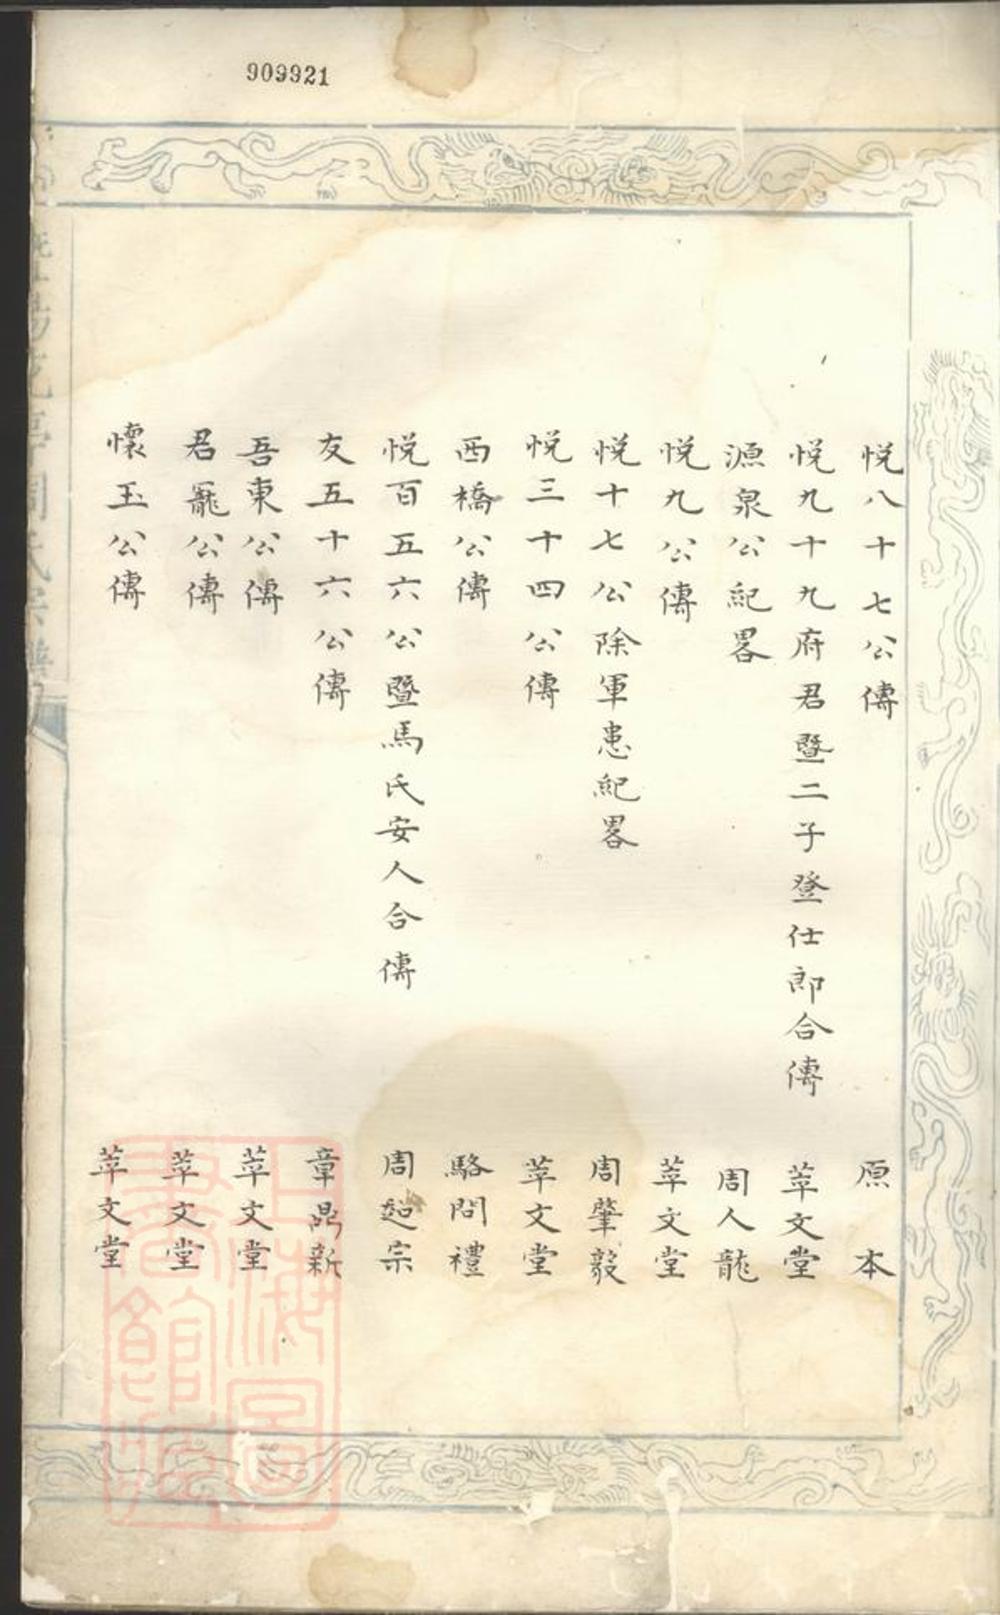 909921
悦八十七公傳　原本
悦九十九府君暨二子登仕郎合傳　萃文堂
源泉公紀畧　周人龍
悦九公傳　萃文堂
悦十七公除軍患紀畧　周肇毅
悦三十四公傳　萃文堂
西橋公傳　駱問禮
悦百五六公暨馬氏安人合傳　周超宗
友五十六公傳　章鼎新
吾東公傳　萃文堂
君寵公傳　萃文堂
懷玉公傳　萃文堂
上海圖書館藏